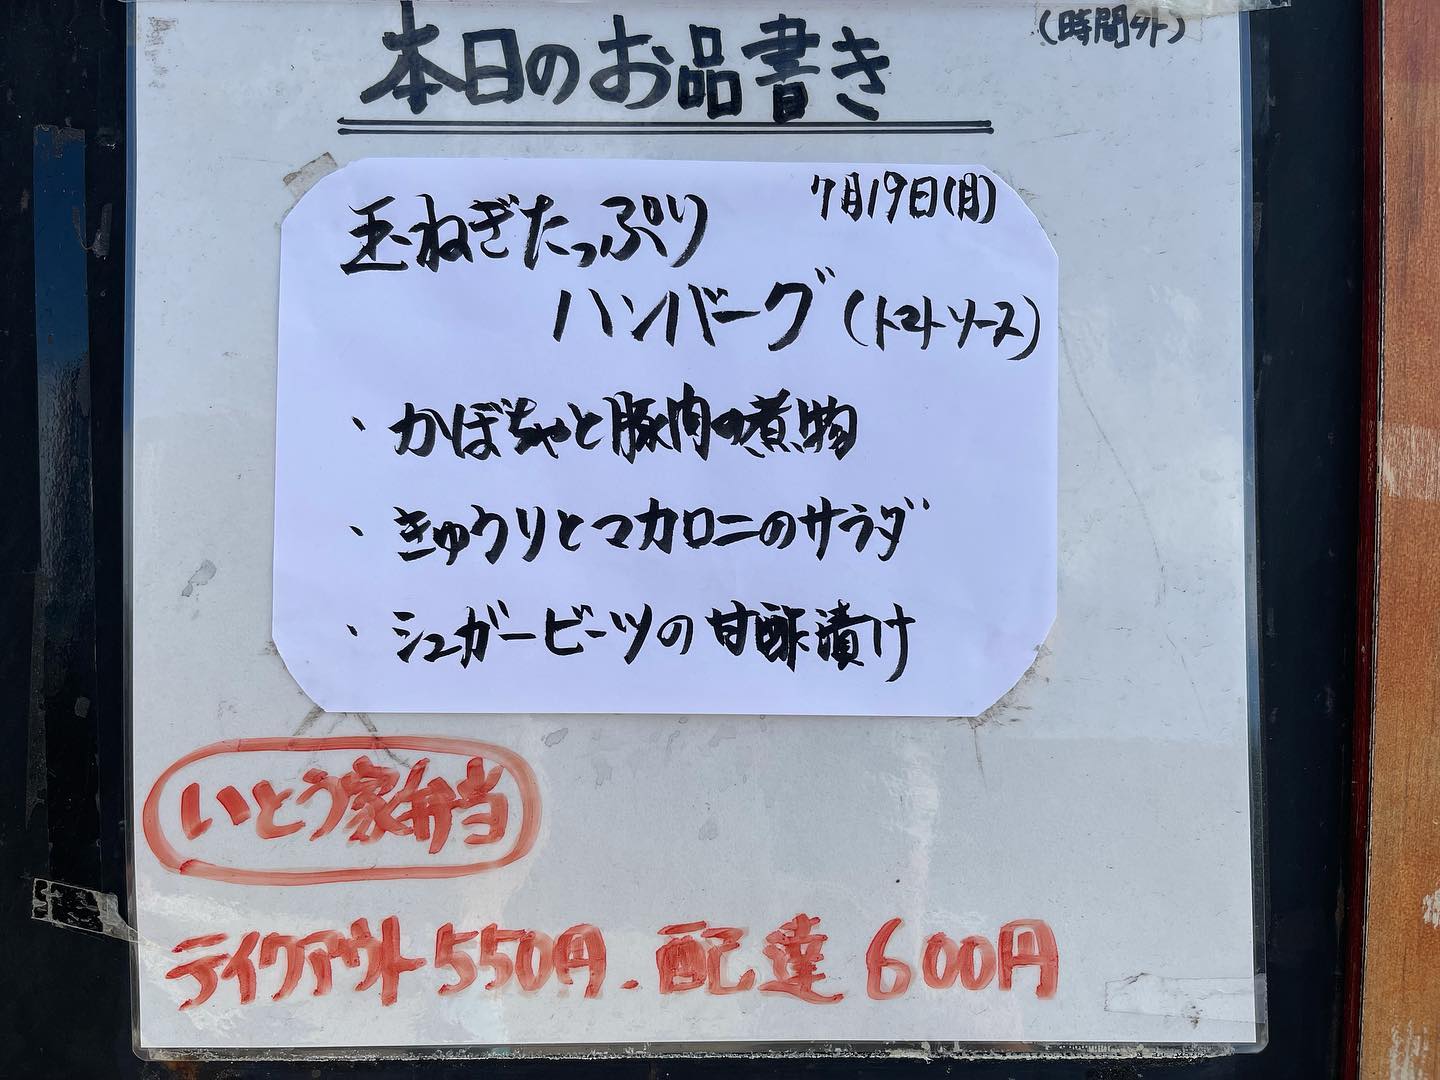 (時間外)
本日のお品書き
7月19日(月)
玉ねぎたっぷり
ハンバーグ(トマトソース)
・かぼちゃと豚肉の煮物
・きゅうりとマカロニのサラダ
・シュガービーツの甘酢漬け
いとう家弁当
テイクアウト550円、配達600円